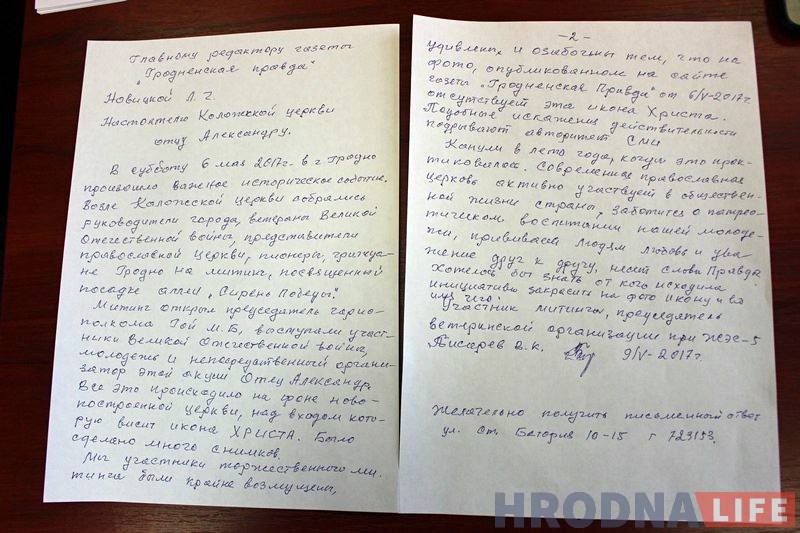 Главному редактору газеты
„Гродненская правда"
Новицкой Л. Г.
Настоятелю Коложской церкви
отцу Александру.
В субботу 6 мая 2017г. в г Гродно
произошло важное историческое событие.
Возле Коложской церкви собрались
руководители города, ветераны Великой
Отечественной войны, представители
православной Церкви, пионеры,
не Гродно на митинг, посвященный
посадке аллеи „Сирень Победы".
Митинг открыл председатель горис-
полкома Гой М.Б, выступали участ-
ники Великой Отечественной войны,
молодежь и непосредственный органи-
затор этой акции Отец Александр.
Все это происходило на фоне ново-
построенной церкви, над входом кото-
рую висит икона ХРИСТА. Было
сделано много снимков.
Мы участники торжественного ми-
тинга были крайне возмущены,
-2-
удивлены и озабочены тем, что на
фото, опубликованном на сайте
газеты „Гродненская Правда" от 6/V-2017г
отсутствует эта икона Христа.
Подобные искажения действительности
подрывают авторитет СМИ
Канули в лето года, когда это прак-
тиковалось. Современная православная
церковь активно участвует в обществен-
ной жизни страны, заботится о патрио-
тическом воспитании нашей молоде-
жи, прививает людям любовь и ува-
жение друг к другу, несет слова Правды.
Хотелось бы знать от кого исходила
инициатива закрасить на фото икону и во
имя чего?
Участник митинга, председатель
ветеранской организации при ЖЭС-5
Писарев В. К. 9/V-2017г.
Желательно получить письменный ответ
ул. Ст. Батория 10-15 т 723153.
HRODNA LIFE